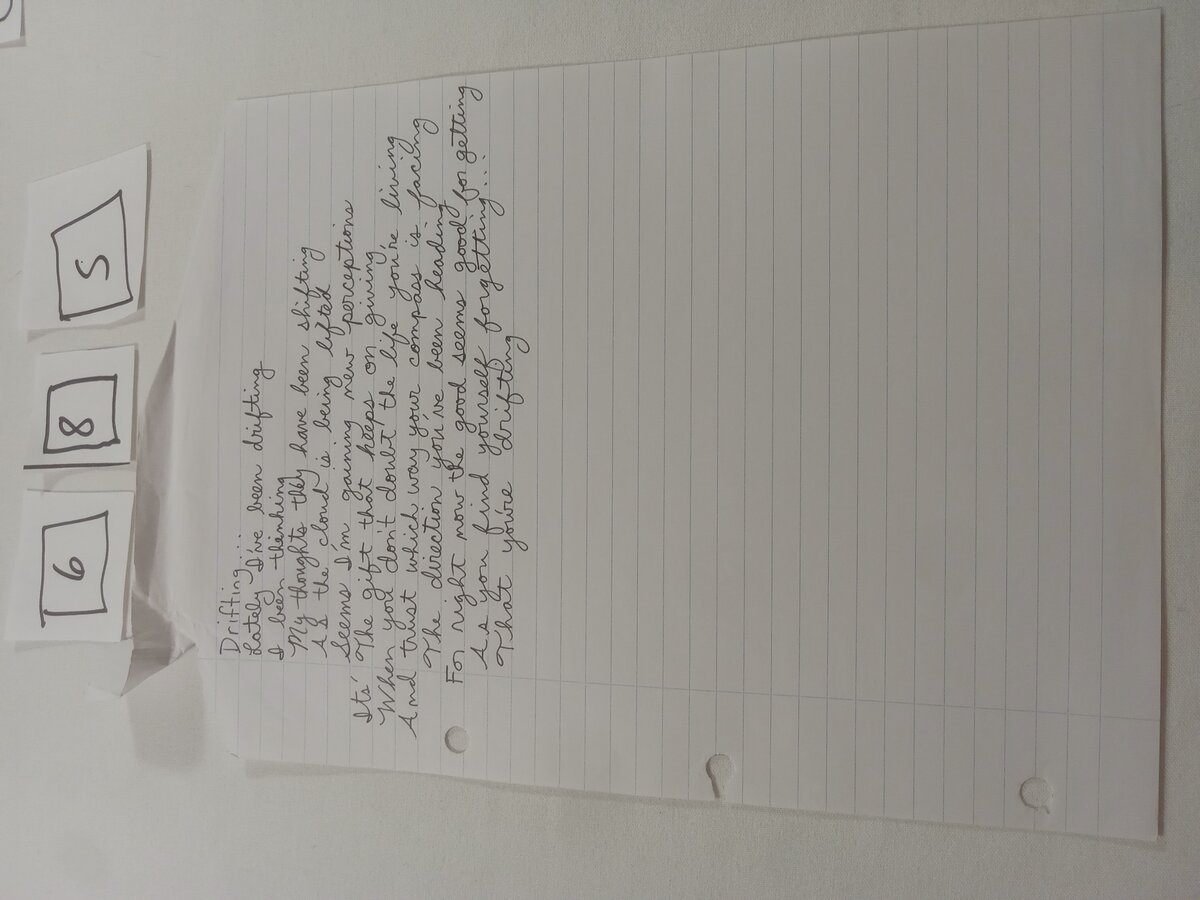 6 8 5
Drifting...
Lately I've been drifting
I been thinking
My thoughts they have been shifting
As the cloud is being lifted
Seems I'm gaining new perceptions
Its' The gift that keeps on giving
When you don't doubt the life you're living
And trust which way your compass is facing
The direction you've been heading
For right now the good seems good for getting
As you find yourself forgetting...
That you're drifting